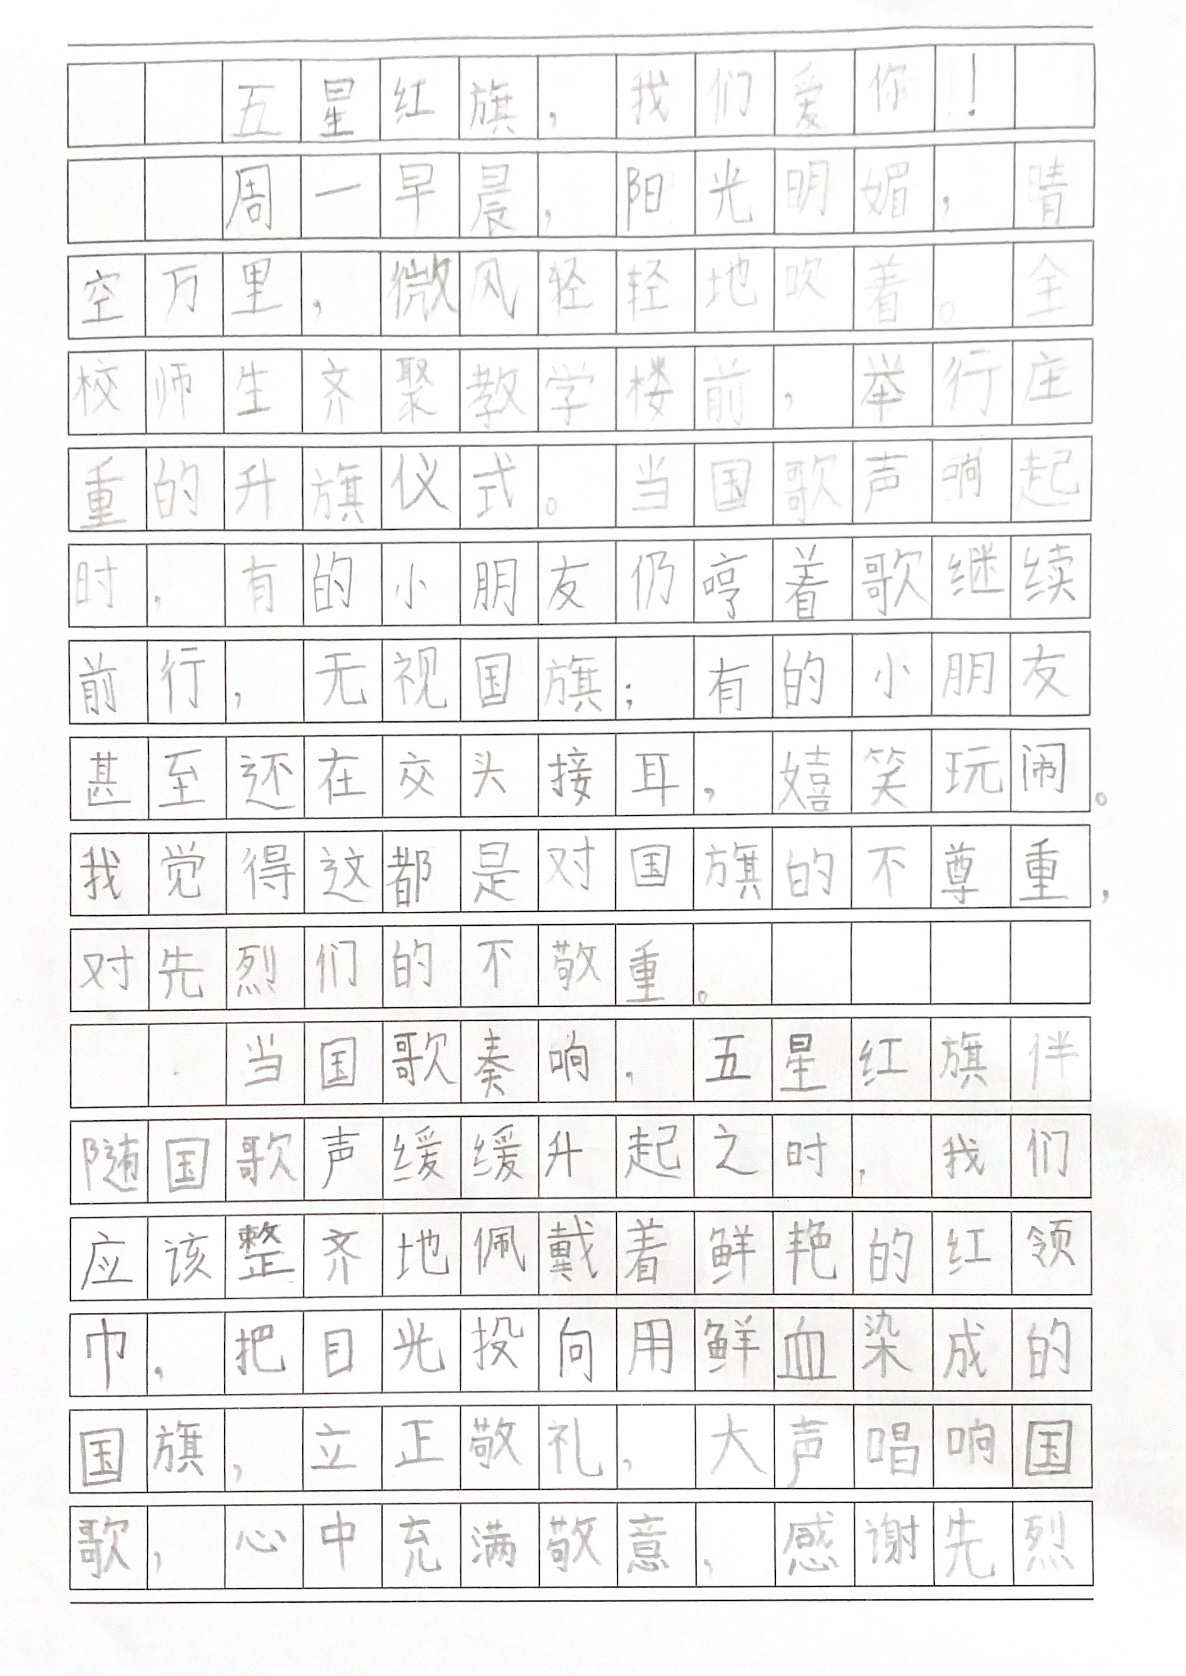 五星红旗，我们爱你！
周一早晨，阳光明媚，晴
空万里，微风轻轻地吹着。全
校师生齐聚教学楼前，举行庄
重的升旗仪式。当国歌声响起
时，有的小朋友仍哼着歌继续
前行，无视国旗；有的小朋友
甚至还在交头接耳，嬉笑玩闹。
我觉得这都是对国旗的不尊重，
对先烈们的不敬重。
当国歌奏响，五星红旗伴
随国歌声缓缓升起之时，我们
应该整齐地佩戴着鲜艳的红领
巾，把目光投向用鲜血染成的
国旗，立正敬礼，大声唱响国
歌，心中充满敬意，感谢先烈